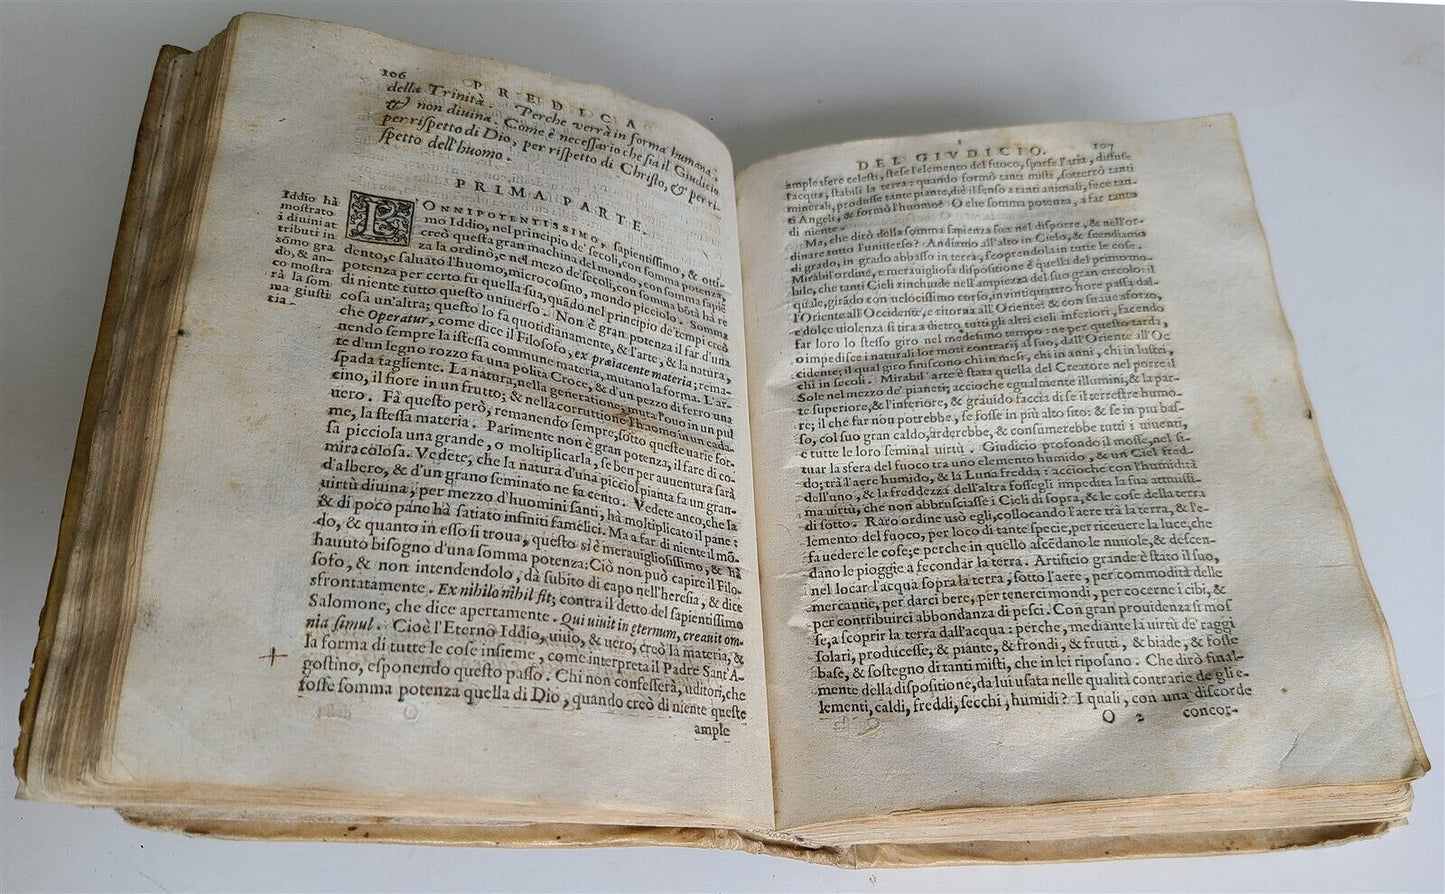 106
PREDICA
della Trinità. Perche verrà in forma humana;
& non diuina. Come è necessario che sia il Giudicio
per rispetto di Dio, per rispetto di Christo, & per ri-
spetto dell'huomo.
PRIMA PARTE.
Iddio hà
mostrato
i diuini at
tributi in
sōmo gra
do, & an-
co mostra
rà la som
ma giusti
tia.
ONNIPOTENTISSIMO, sapientissimo, & otti-
mo Iddio, nel principio de' secoli, con somma potenza,
creò questa gran machina del mondo, con somma sapiē
za la ordinò, e nel mezo de' secoli, con somma bōtà hà re
dento, e saluato l'huomo, microcosmo, mondo picciolo. Somma
potenza per certo fu quella sua, quādo nel principio de' tempi creò
di niente tutto questo vniuerso. Non è gran potenza il far d'vna
cosa vn'altra; questo lo fa quotidianamente, & l'arte, & la natura,
che Operatur, come dice il Filosofo, ex praeiacente materia; rema-
nendo sempre la istessa commune materia, mutano la forma. L'ar-
te d'vn legno rozzo fa vna polita Croce, & d'vn pezzo di ferro vna
spada tagliente. La natura, nella generatione, muta l'ouo in vn pul
cino, il fiore in vn frutto; & nella corruttione l'huomo in vn cada-
uero. Fà questo però, remanendo sempre, sotto queste varie for-
me, la stessa materia. Parimente non è gran potenza, il fare di co-
sa picciola vna grande, o moltiplicarla, se ben per auuentura sarà
miracolosa. Vedete, che la natura d'vna picciol pianta fa vn gran-
d'albero, & d'vn grano seminato ne fa cento. Vedete anco, che la
virtù diuina, per mezzo d'huomini santi, hà moltiplicato il pane;
& di poco pano hà satiato infiniti famelici. Ma a far di niente il mō-
do, & quanto in esso si troua, questo sì è merauigliosissimo, & hà
hauuto bisogno d'vna somma potenza: Ciò non può capire il Filo-
sofo, & non intendendolo, dà subito di capo nell'heresia, & dice
sfrontatamente. Ex nihilo nihil fit; contra il detto del sapientissimo
Salomone, che dice apertamente. Qui viuit in ęternum, creauit om-
nia simul. Cioè l'Eterno Iddio, viuo, & vero, creò la materia, &
la forma di tutte le cose insieme, come interpreta il Padre Sant'A-
gostino, esponendo questo passo. Chi non confesserà, uditori, che
fosse somma potenza quella di Dio, quando creò di niente queste
ample
DEL GIVDICIO. 107
ample sfere celesti, stese l'elemento del fuoco, sparse l'aria, diffuse
l'acqua, stabilì la terra: quando formò tanti misti, sotterrò tanti
minerali, produsse tante piante, diè il senso a tanti animali, fece tan-
ti Angeli, & formò l'huomo? O che somma potenza, a far tanto
di niente.
Ma, che dirò della somma sapienza sua nel disporre, & nell'or-
dinare tutto l'vniuerso? Andiamo all'alto in Cielo, & scendiamo
di grado, in grado abbasso in terra, scoprendola in tutte le cose.
Mirabil'ordine, e merauigliosa dispositione è quella del primo mo-
bile, che tanti Cieli rinchiude nell'ampiezza del suo gran circolo: il
quale, girādo con uelocissimo corso, in uintiquattro hore passa dal-
l'Oriente all'Occidente, e ritorna all'Oriente: & con suaue sforzo,
e dolce violenza si tira a dietro tutti gli altri cieli inferiori, facendo
far loro lo stesso giro nel medesimo tempo: ne per questo tarda,
o impedisce i naturali lor moti contrarij al suo, dall'Oriente all'Oc
cidente; il qual giro finiscono chi in mesi, chi in anni, chi in lustri,
chi in secoli. Mirabil'arte è stata quella del Creatore nel porre il
Sole nel mezzo de' pianeti; accioche egualmente illumini, & la par-
te superiore, & l'inferiore, & grauido faccia di se il terrestre humo-
re; il che far non potrebbe, se fosse in più alto sito: & se in piu bas-
so, col suo gran caldo, arderebbe, & consumerebbe tutti i uiuenti,
e tutte le loro seminal virtù. Giudicio profondo il mosse, nel si-
tuar la sfera del fuoco tra uno elemento humido, & un Ciel fred-
do; trà l'aere humido, & la Luna fredda: accioche con l'humidità
dell'uno, & la freddezza dell'altra fossegli impedita la sua attiuissi
ma uirtù, che non abbrusciasse i Cieli di sopra, & le cose della terra
di sotto. Raro ordine usò egli, collocando l'aere trà la terra, & l'e-
lemento del fuoco, per loco di tante specie, per riceuere la luce, che
fa uedere le cose; e perche in quello ascēdano le nuuole, & descen-
dano le pioggie a fecondar la terra. Artificio grande è stato il suo,
nel locar l'acqua sopra la terra, sotto l'aere, per commodità delle
mercantie, per darci bere, per tenerci mondi, per cocerne i cibi, &
per contribuirci abbondanza di pesci. Con gran prouidenza si mos
se, a scoprir la terra dall'acqua: perche, mediante la uirtù de' raggi
solari, producesse, & piante, & frondi, & frutti, & biade, & fosse
base, & sostegno di tanti misti, che in lei riposano. Che dirò final-
mente della dispositione, da lui usata nelle qualità contrarie de gli e-
lementi, caldi, freddi, secchi, humidi? I quali, con una discorde
O 2 concor-